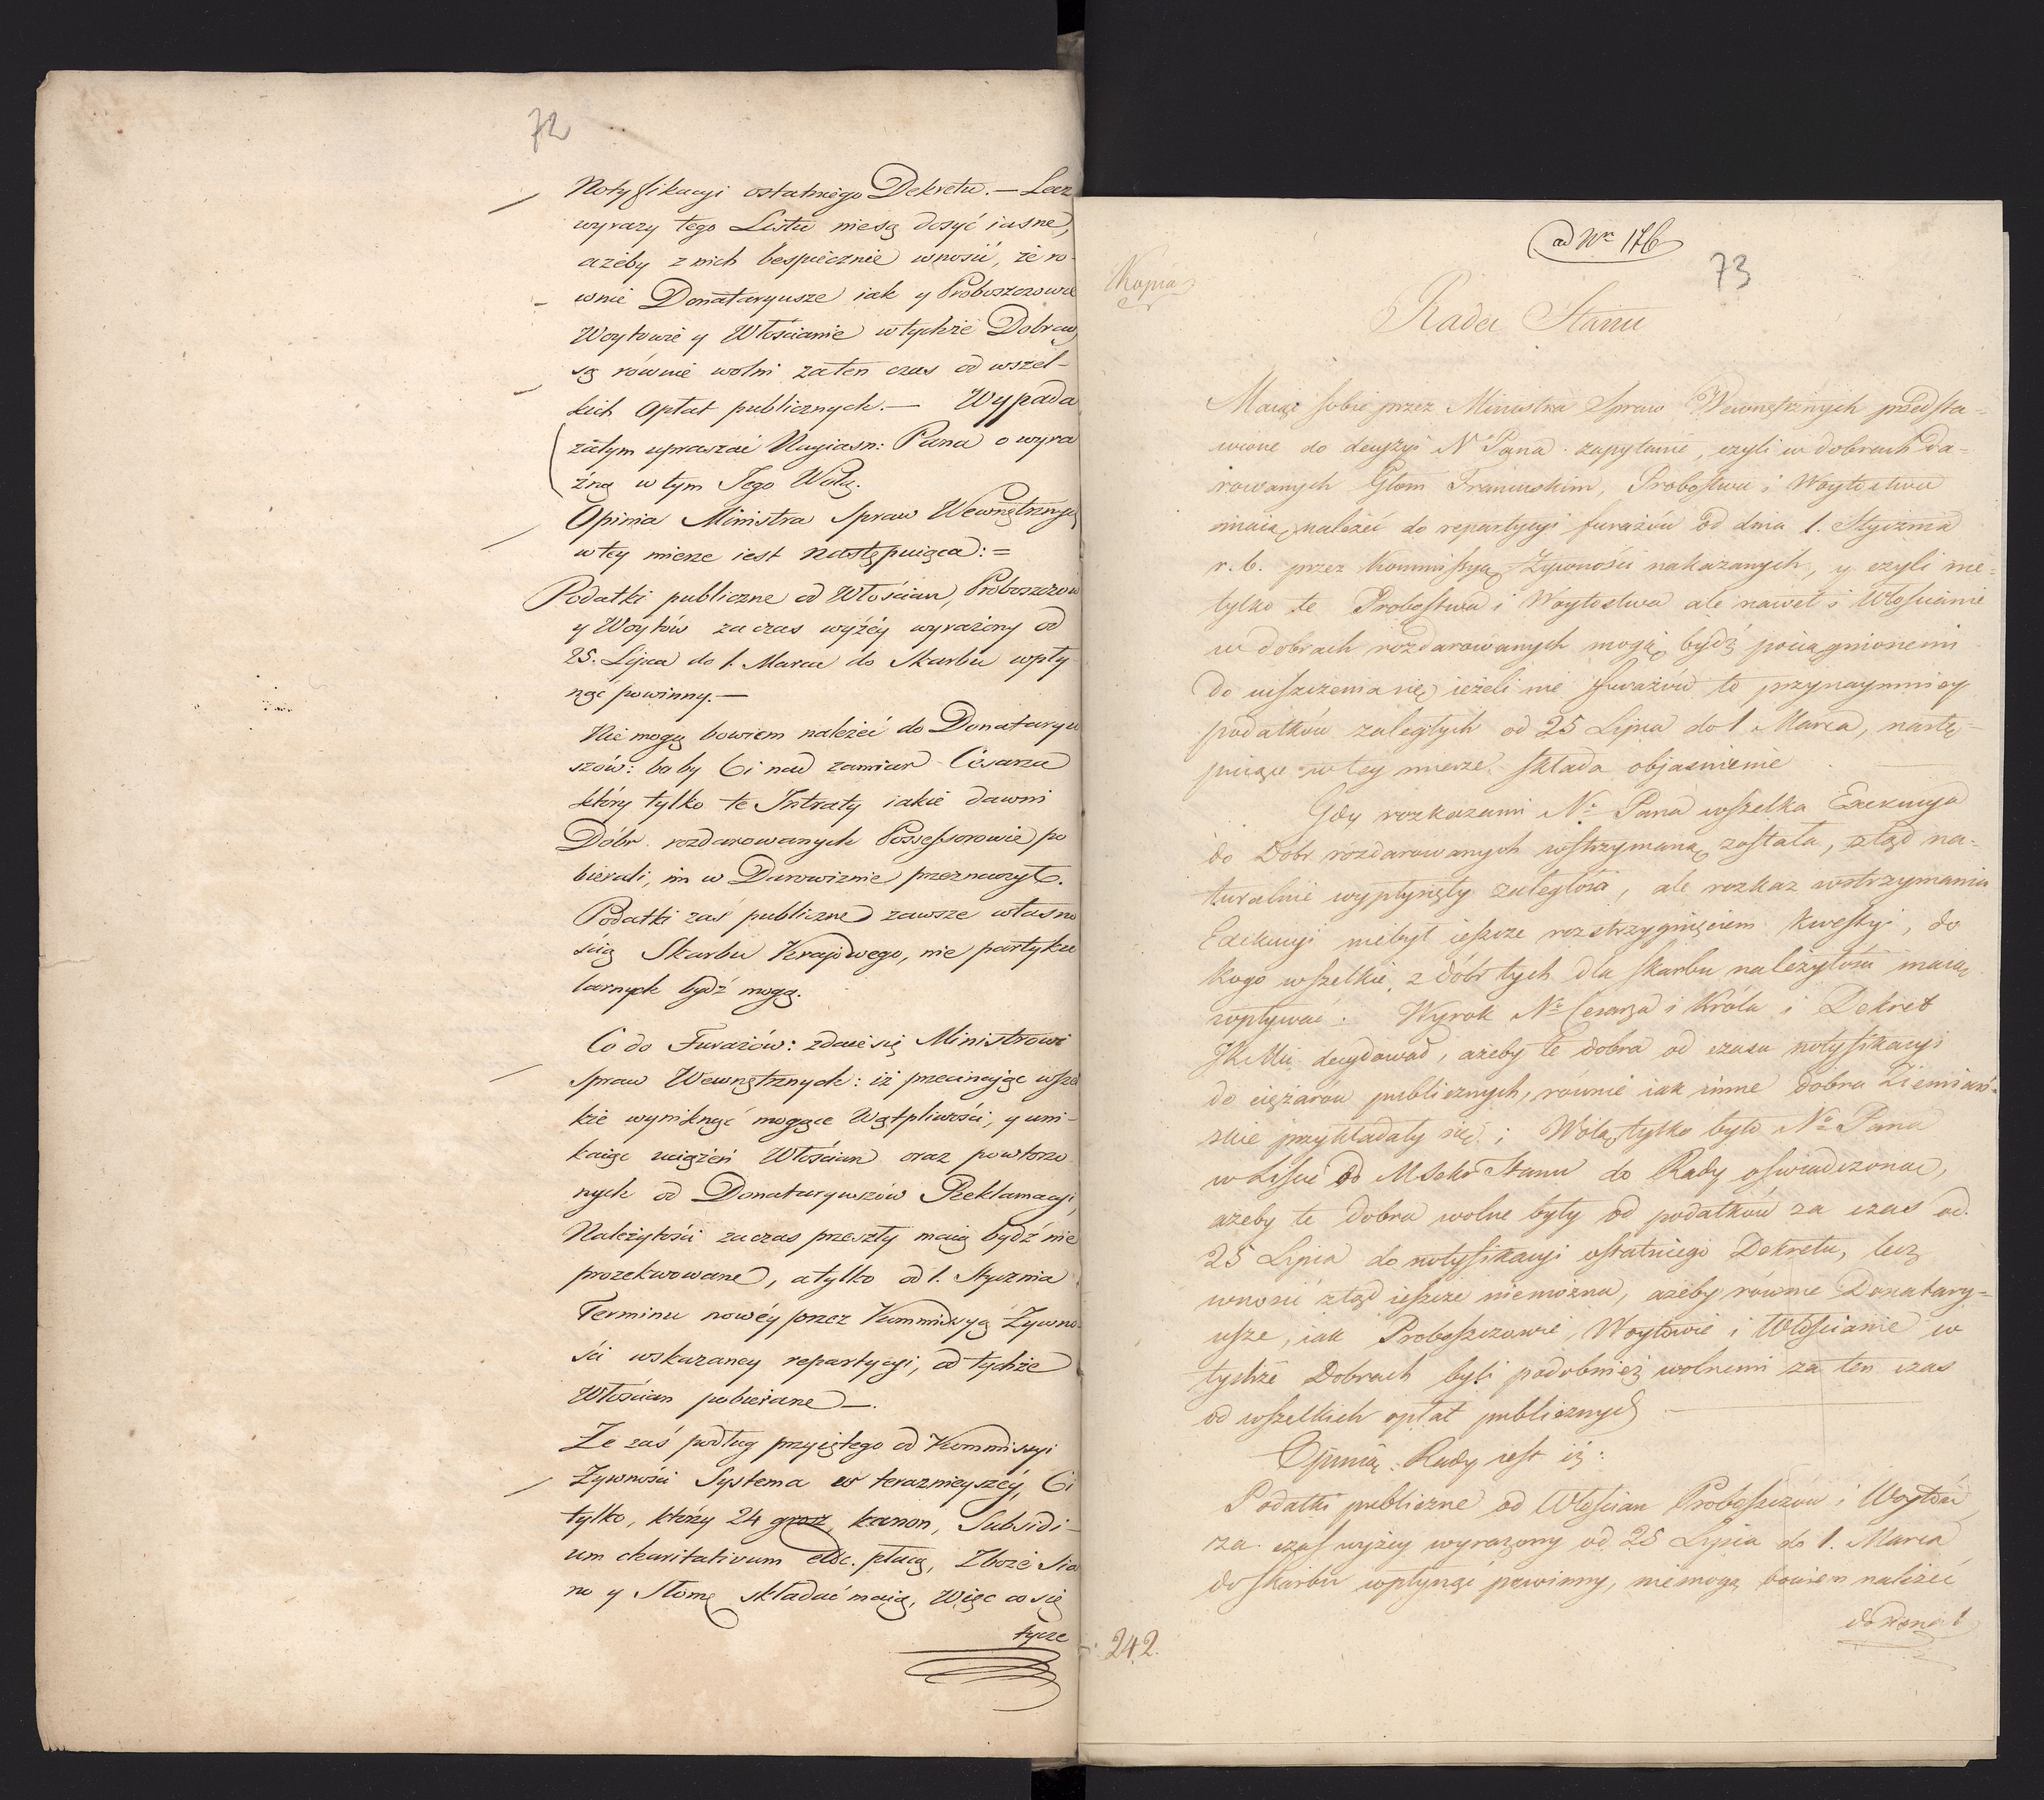 72
Notyfikacyi ostatniego Dekretu. — Lecz
wyrazy tego Listu niesą dosyć iasne,
ażeby z nich bespiecznie wnosić, że ro-
wnie Donataryusze iak y Proboszczowie
Woytowie y Włościanie w tychże Dobrach
są równie wolni za ten czas od wszel-
kich Opłat publicznych. — Wypada
zatym upraszać Nayiasn: Pana o wyra
źną w tym Jego Wolą.
Opinia Ministra Spraw Wewnętrznych
w tey mierze iest następuiąca: =
Podatki publiczne od Włościan, Proboszczow
y Woytów za czas wyżéy wyrażony od
25. Lipca do 1. Marca do Skarbu wpły
nąć powinny. —
Nie mogą bowiem należeć do Donataryu
szów: bo by Ci nad zamiar Césarza
który tylko te Intraty iakie dawni
Dóbr rozdarowanych Possessorowie po
bierali, im w Darowiznie przeznaczył.
Podatki zaś publiczne zawsze własno
ścią Skarbu Krajowego, nie partyku
larnych bydź mogą.
Co do Furażów: zdaie się Ministrowi
Spraw Wewnętrznych: iż przecinając wszel
kie wyniknąć mogące Wątpliwości, y uni-
kaiąc uciążeń Włościan oraz powtorzo
nych od Donataryuszów Reklamacyi,
Należytości za czas przeszły maią bydź nie
prozekwowane, a tylko od 1. Stycznia
Terminu nowéy przez Kommissyą Żywno
ści wskazaney repartycyi, od tychże
Włościan pobierane —.
Że zaś podług przyiętego od Kommissyi
Żywności Systema w teraznieyszéy, Ci
tylko, którzy 24 grosz, kanon, Subsidi-
um charitativum etc. płacą, Zboże Sia
no y Słomę składać maią, Więc co się
tycze
ad Nrn 176
73
Kopia
Rada Stanu
Maiąc sobie przez Ministra Spraw Wewnętrznych przedsta-
wione do decyzyi N Pana zapytanie, czyli w dobrach da-
rowanych Głom Francuskim, Probostwa i Woytostwa
maią należeć do repartycyi furażów od dnia 1. Stycznia
r. b. przez Kommissyą Żywności nakazanych, y czyli nie-
tylko te Probostwa i Woytostwa ale nawet i Włościanie
w dobrach rozdarowanych mogą bydź pociągnionemi
do uiszczenia się ieżeli nie furażów to przynaymniey
podatków zaległych od 25 Lipca do 1 Marca, nastę-
puiące w tey mierze składa objaśnienie
Gdy rozkazami No Pana wszelka Exekucya
do Dobr rozdarowanych wstrzymaną została, ztąd na-
turalnie wypłynęły zaległości, ale rozkaz wstrzymania
Exekucyi niebył ieszcze rozstrzygnięciem kwestyi, do
kogo wszelkie z dóbr tych dla skarbu należytości maią
wpływać. Wyrok No Cesarza i Króla i Dekret
JKMci decydował, ażeby te dobra od czasu notyfikacyi
do ciężarów publicznych, rownie iak inne dobra Ziemiań-
skie przykładały się; Wolą tylko było No Pana
w Liście od M Sekr Stanu do Rady oświadczoną,
ażeby te dobra wolne były od podatków za czas od
25 Lipca do notyfikacyi ostatniego Dekretu, lecz
wnosić ztąd ieszcze niemożna, ażeby równie Donatary-
usze, iak Proboszczowie, Woytowie i Włościanie w
tychże Dobrach byli podobnież wolnemi za ten czas
od wszelkich opłat publicznych
Opinią Rady iest iż:
Podatki publiczne od Włościan Proboszczów i Woytów
za czas wyżey wyrażony od 25 Lipca do 1. Marca
do skarbu wpłynąć powinny, niemogą bowiem należeć
do Donat
242.